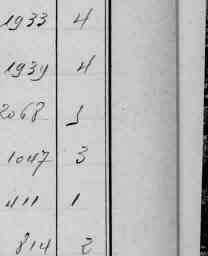 1933 4
1939 4
2068 1
1047 3
411 1
814 2